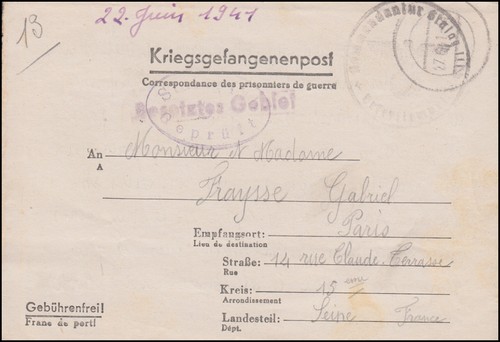 13
22 Juin 1941
Kriegsgefangenenpost
Correspondance des prisonniers de guerre
Besetztes Gebiet
Geprüft
An Monsieur et Madame
A
Fraysse Gabriel
Empfangsort: Paris
Lieu de destination
Straße: 14 rue Claude Terrasse
Rue
Kreis: 15 eme
Arrondissement
Gebührenfrei!
Franc de port!
Landesteil: Seine France
Dépt.